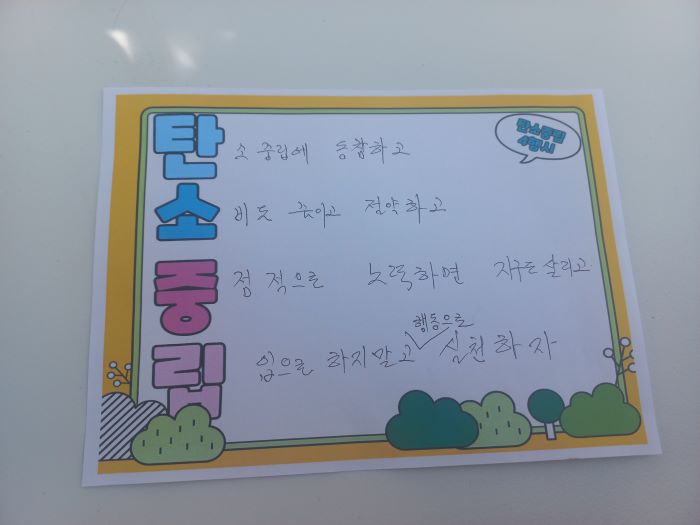 탄소중립
4행시
탄 소 중립에 동참하고
소 줄이고 절약하고
중 점적으로 노력하면 살리고
행동으로
립 입으로 하지말고 실천하자